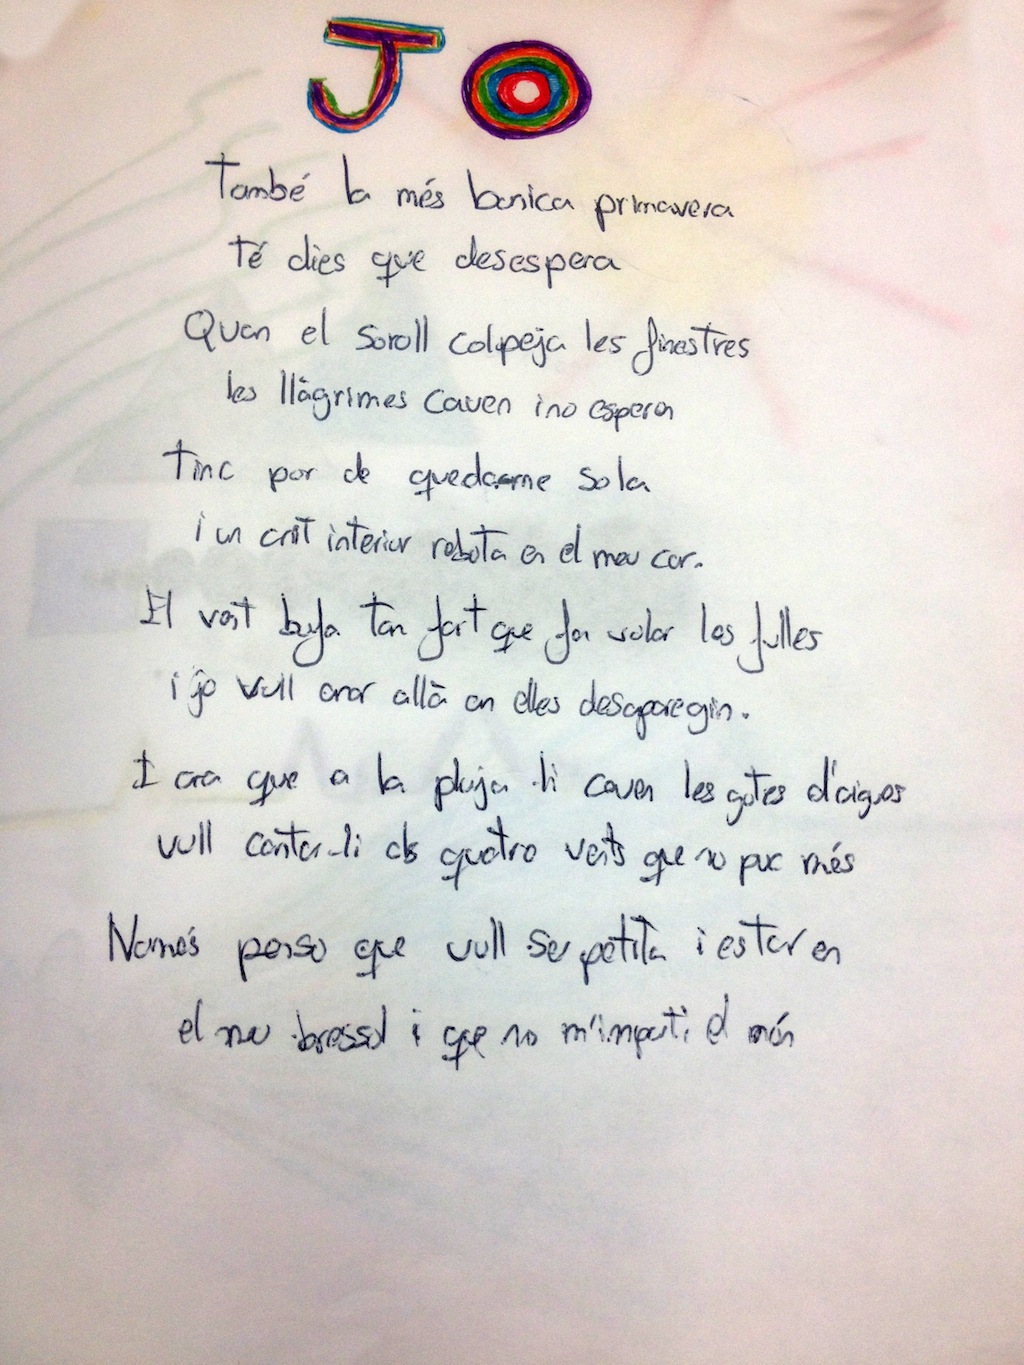 JO
També la més bonica primavera
té dies que desespera
Quan el soroll colpeja les finestres
les llàgrimes cauen i no esperen
Tinc por de quedarme sola
i un crit interior rebota en el meu cor.
El vent bufa tan fort que fa volar les fulles
i jo vull anar allà on elles desaparegin.
I ara que a la pluja li cauen les gotes d'aigües
vull contar-li als quatre vents que no puc més
Només penso que vull ser petita i estar en
el meu bressol i que no m'importi el món